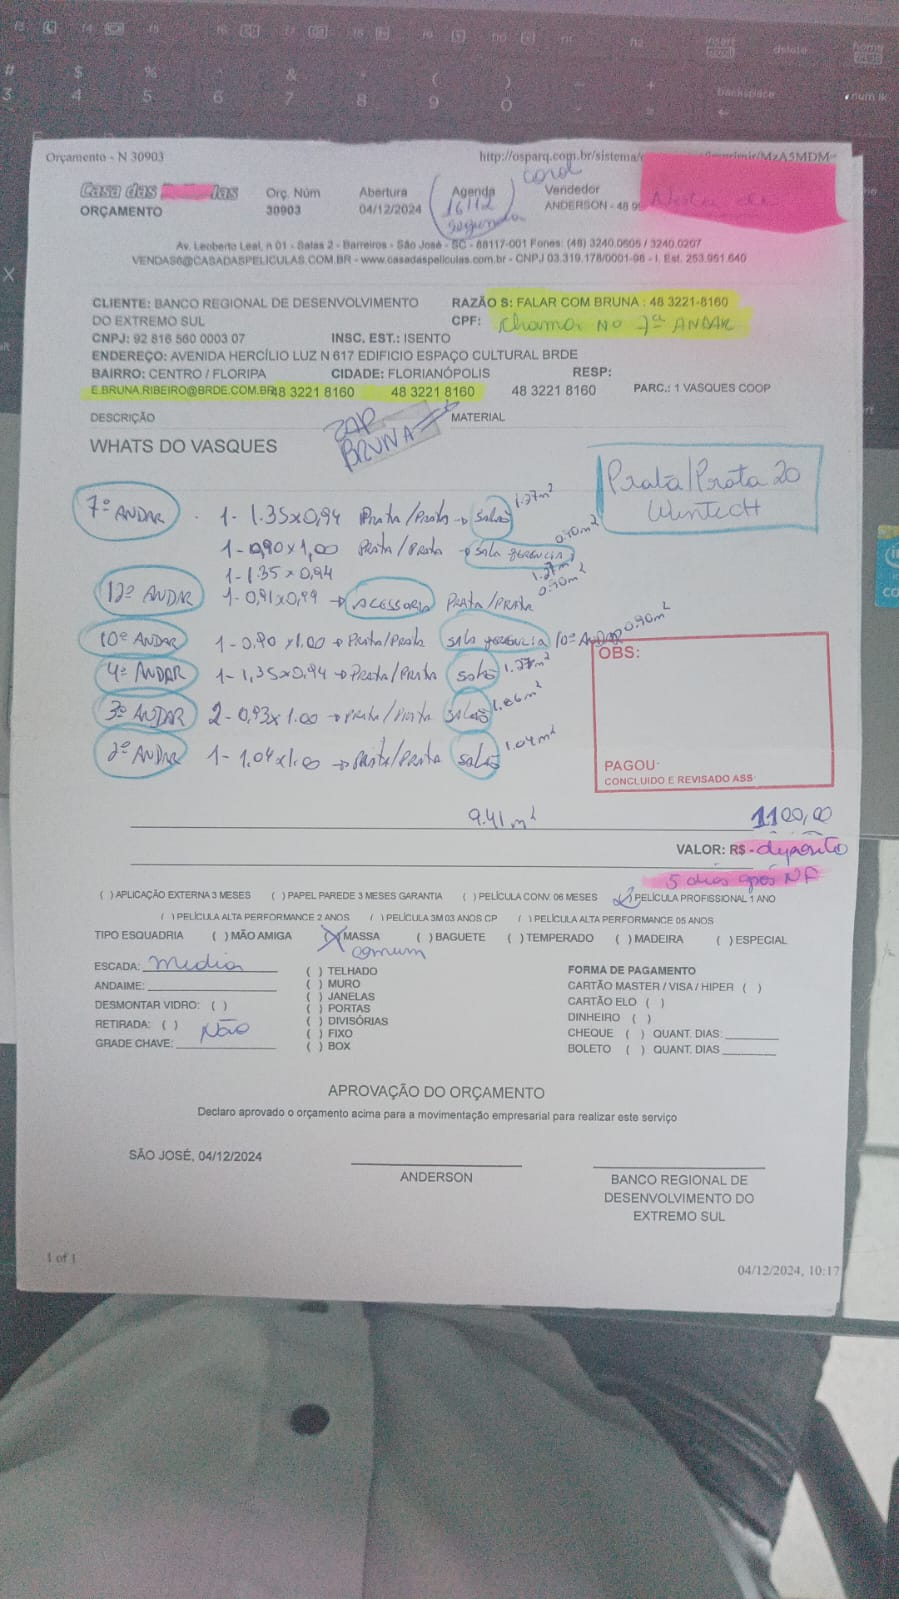 Orçamento - N 30903
http://osparq.com.br/sistema/
Casa das las
ORÇAMENTO
Orç. Núm
30903
Abertura
04/12/2024
Agenda
16/12
Segunda
Coral
Vendedor
ANDERSON - 48 99
Av. Leoberto Leal, n 01 - Salas 2 - Barreiros - São José - SC - 88117-001 Fones: (48) 3240.0605 / 3240.0207
VENDAS6@CASADASPELICULAS.COM.BR - www.casadaspeliculas.com.br - CNPJ 03.319.178/0001-96 - I. Est. 253.951.640
CLIENTE: BANCO REGIONAL DE DESENVOLVIMENTO
DO EXTREMO SUL
RAZÃO S: FALAR COM BRUNA : 48 3221-8160
CPF: Chamar NO 7º ANDAR
CNPJ: 92 816 560 0003 07
INSC. EST.: ISENTO
ENDEREÇO: AVENIDA HERCÍLIO LUZ N 617 EDIFICIO ESPAÇO CULTURAL BRDE
BAIRRO: CENTRO / FLORIPA
CIDADE: FLORIANÓPOLIS
RESP:
E.BRUNA.RIBEIRO@BRDE.COM.BR 48 3221 8160
48 3221 8160
48 3221 8160
PARC.: 1 VASQUES COOP
DESCRIÇÃO
ZAP
BRUNA
MATERIAL
WHATS DO VASQUES
Prata/Prata 20
WINTECH
7º ANDAR . 1 - 1.35x0,94 PRATA/PRATA → SALÃO 1.27m²
1 - 0,90x1,00 PRATA/PRATA → SALA GERENCIA 0.90m²
1 - 1.35x0.94 1.27m²
12º ANDAR 1 - 0,91x0,99 → ACESSORIA PRATA/PRATA 0.90m²
10º ANDAR 1 - 0.90x1.00 → PRATA/PRATA SALA GERENCIA 10º ANDAR 0.90m²
4º ANDAR 1 - 1,35x0,94 → PRATA/PRATA SALÃO 1.27m²
3º ANDAR 2 - 0,93x1.00 → PRATA/PRATA SALÃO 1.86m²
2º ANDAR 1 - 1.04x1.00 → PRATA/PRATA SALÃO 1.04m²
OBS:
PAGOU:
CONCLUIDO E REVISADO ASS:
9.41 m²
1100,00
VALOR: R$ - deposito
5 dias após NF
( ) APLICAÇÃO EXTERNA 3 MESES ( ) PAPEL PAREDE 3 MESES GARANTIA ( ) PELÍCULA CONV. 06 MESES ( ) PELÍCULA PROFISSIONAL 1 ANO
( ) PELÍCULA ALTA PERFORMANCE 2 ANOS ( ) PELÍCULA 3M 03 ANOS CP ( ) PELÍCULA ALTA PERFORMANCE 05 ANOS
TIPO ESQUADRIA ( ) MÃO AMIGA (X) MASSA ( ) BAGUETE ( ) TEMPERADO ( ) MADEIRA ( ) ESPECIAL
comum
ESCADA: media
ANDAIME:
DESMONTAR VIDRO: ( )
RETIRADA: ( ) Não
GRADE CHAVE:
( ) TELHADO
( ) MURO
( ) JANELAS
( ) PORTAS
( ) DIVISÓRIAS
( ) FIXO
( ) BOX
FORMA DE PAGAMENTO
CARTÃO MASTER / VISA / HIPER ( )
CARTÃO ELO ( )
DINHEIRO ( )
CHEQUE ( ) QUANT. DIAS:
BOLETO ( ) QUANT. DIAS
APROVAÇÃO DO ORÇAMENTO
Declaro aprovado o orçamento acima para a movimentação empresarial para realizar este serviço
SÃO JOSÉ, 04/12/2024
ANDERSON
BANCO REGIONAL DE
DESENVOLVIMENTO DO
EXTREMO SUL
1 of 1
04/12/2024, 10:17